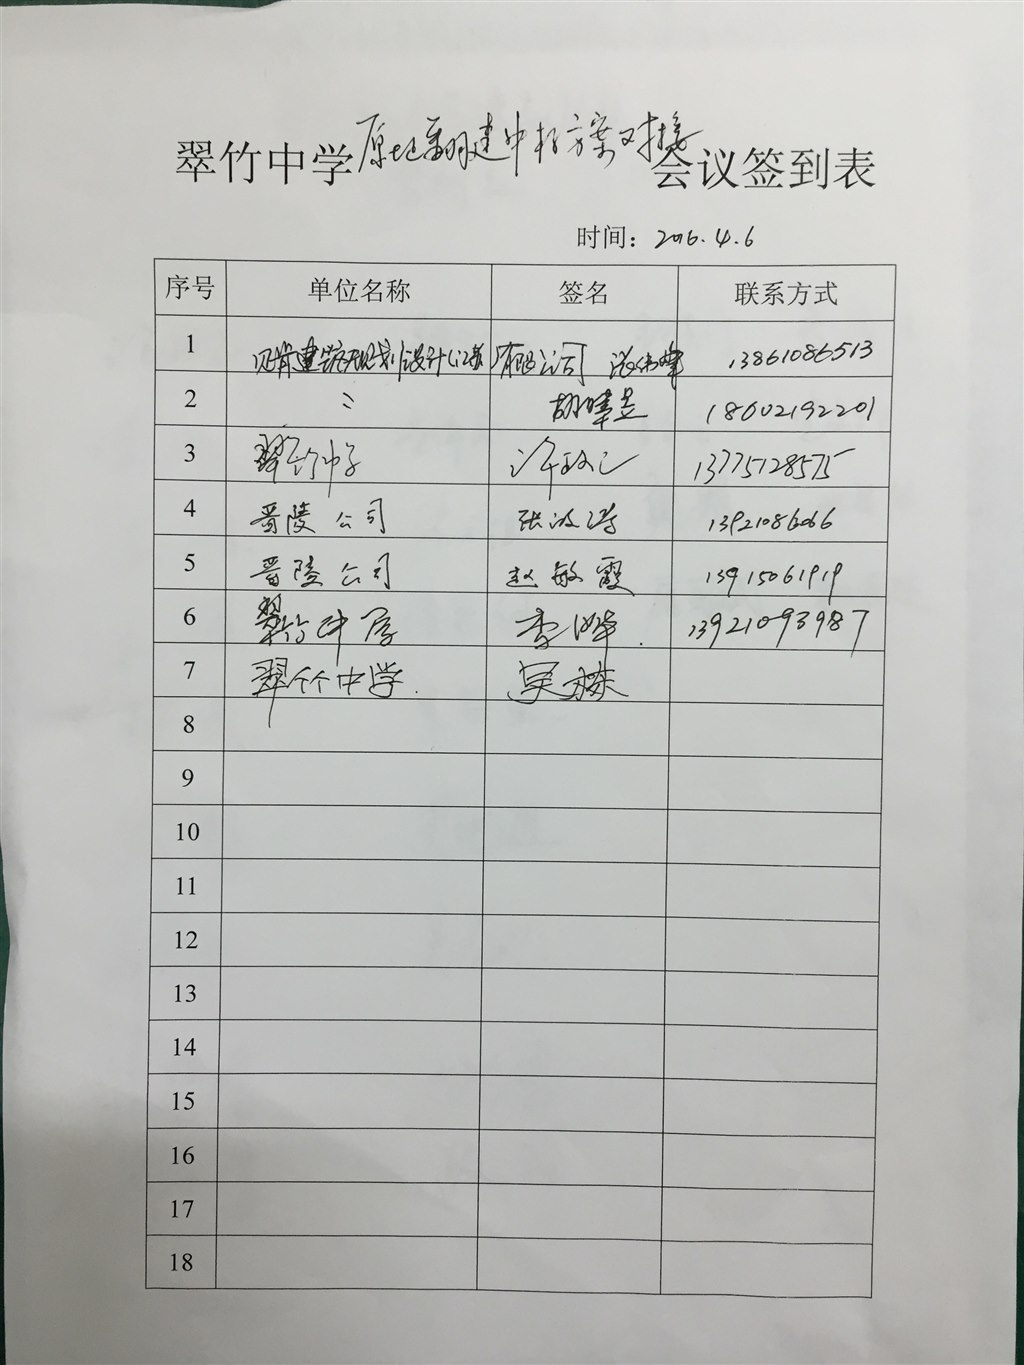 翠竹中学原地翻建中标方案对接会议签到表
时间：2016.4.6
序号 单位名称 签名 联系方式
1 贝肯建筑规划设计(江苏)有限公司 13861086513
2 〃 18602192201
3 翠竹中学 13775128575
4 晋陵公司 13921086066
5 晋陵公司 赵敏霞 13915061919
6 翠竹中学 李峰 13921093987
7 翠竹中学 吴栋
8
9
10
11
12
13
14
15
16
17
18